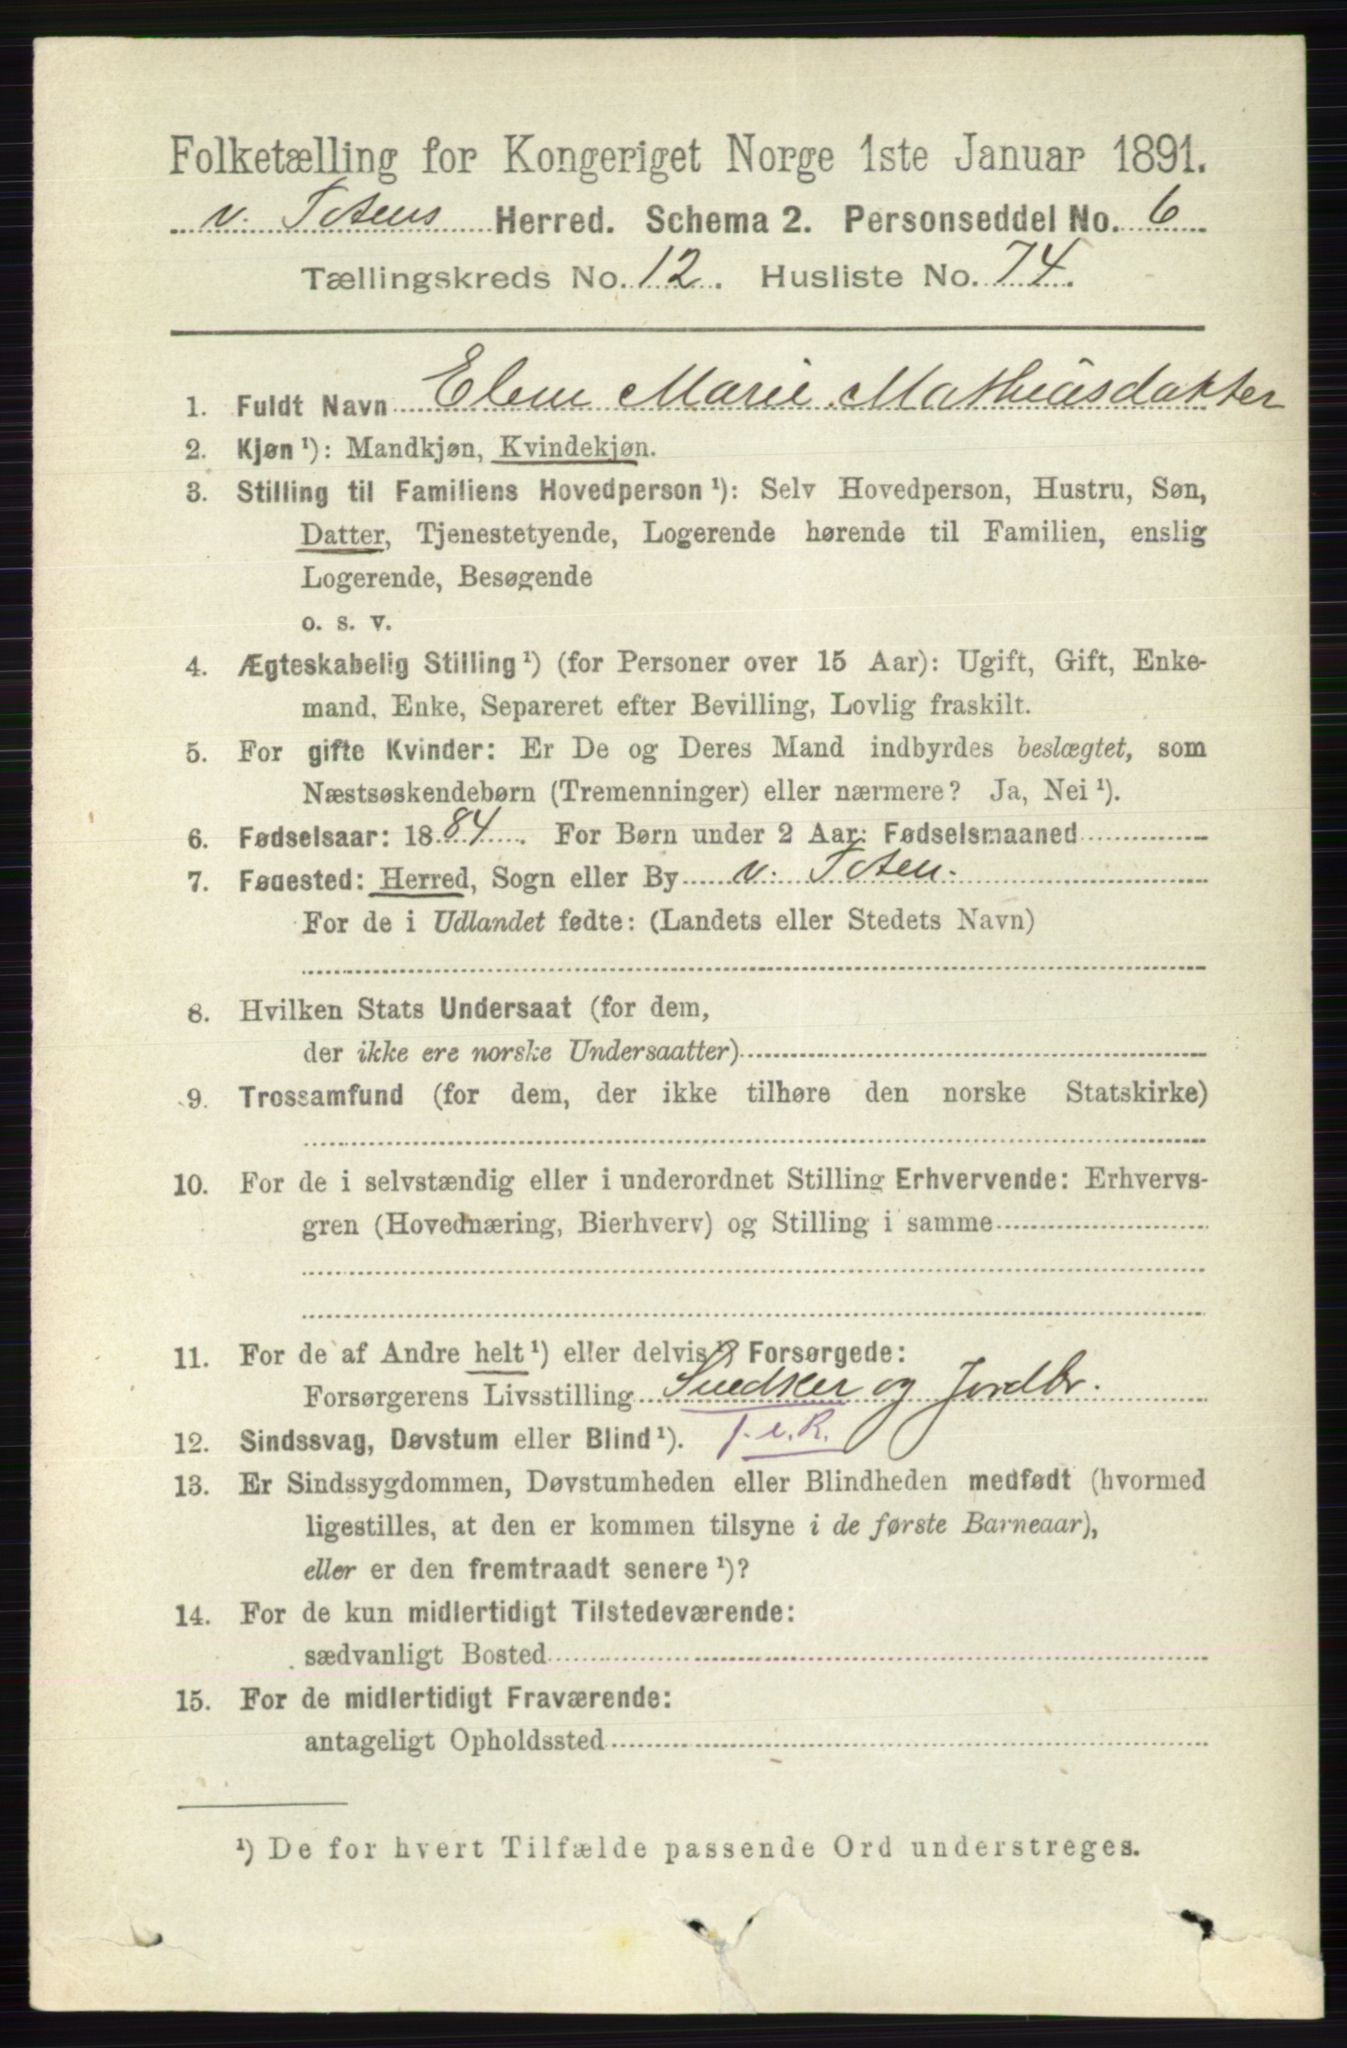 Folketælling for Kongeriget Norge 1ste Januar 1891.
v. Totens Herred. Schema 2. Personseddel No. 6
Tællingskreds No. 12. Husliste No. 74.
1. Fuldt Navn Elene Marie Mathiasdatter
2. Kjøn ¹): Mandkjøn, Kvindekjøn.
3. Stilling til Familiens Hovedperson ¹): Selv Hovedperson, Hustru, Søn,
Datter, Tjenestetyende, Logerende hørende til Familien, enslig
Logerende, Besøgende
o. s. v.
4. Ægteskabelig Stilling ¹) (for Personer over 15 Aar): Ugift, Gift, Enke-
mand, Enke, Separeret efter Bevilling, Lovlig fraskilt.
5. For gifte Kvinder: Er De og Deres Mand indbyrdes beslægtet, som
Næstsøskendebørn (Tremenninger) eller nærmere? Ja, Nei ¹).
6. Fødselsaar: 1884. For Børn under 2 Aar: Fødselsmaaned
7. Fødested: Herred, Sogn eller By v. Toten.
For de i Udlandet fødte: (Landets eller Stedets Navn)
8. Hvilken Stats Undersaat (for dem,
der ikke ere norske Undersaatter)
9. Trossamfund (for dem, der ikke tilhøre den norske Statskirke)
10. For de i selvstændig eller i underordnet Stilling Erhvervende: Erhvervs-
gren (Hovednæring, Bierhverv) og Stilling i samme
11. For de af Andre helt ¹) eller delvis ¹) Forsørgede:
Forsørgerens Livsstilling Snedker og Jordbr.
12. Sindssvag, Døvstum eller Blind ¹). T.e.R.
13. Er Sindssygdommen, Døvstumheden eller Blindheden medfødt (hvormed
ligestilles, at den er kommen tilsyne i de første Barneaar),
eller er den fremtraadt senere ¹)?
14. For de kun midlertidigt Tilstedeværende:
sædvanligt Bosted
15. For de midlertidigt Fraværende:
antageligt Opholdssted
¹) De for hvert Tilfælde passende Ord understreges.